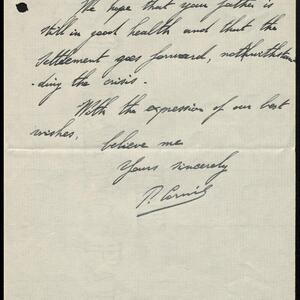 We hope that your father is
still in good health and that the
settlement goes forward, nothwithstan-
-ding the crisis.
With the expression of our best
wishes,
believe me
Yours sincerely